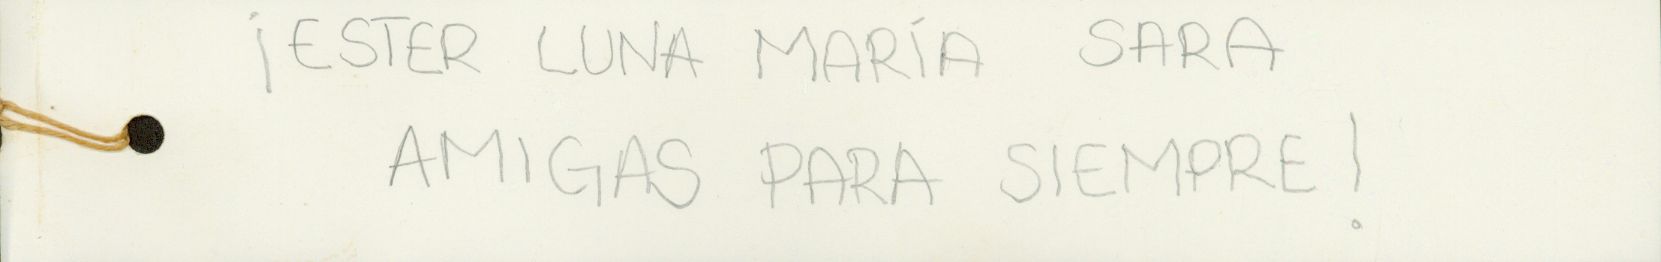 ¡ESTER LUNA MARÍA SARA
AMIGAS PARA SIEMPRE!